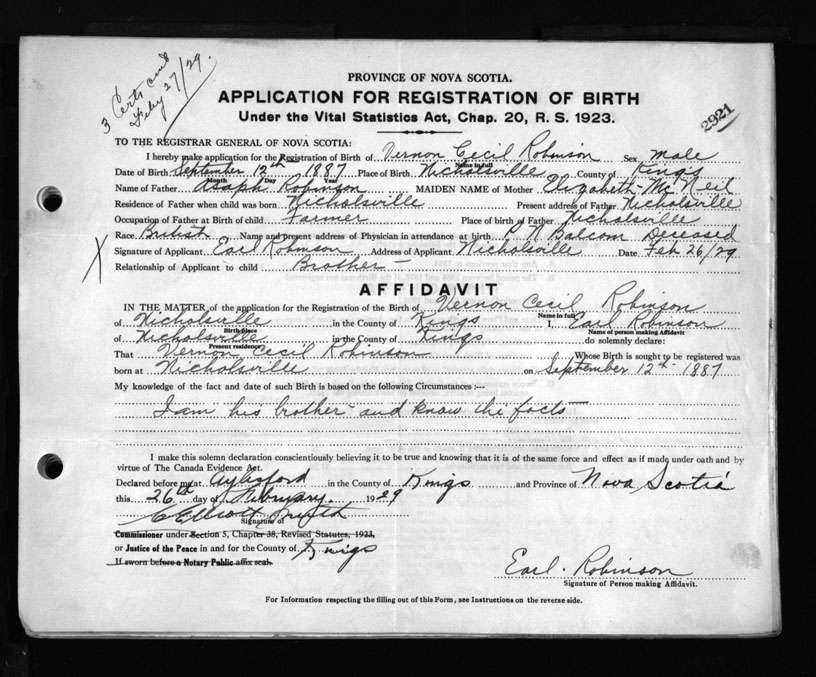 3 Certs
Feby 27/29.
PROVINCE OF NOVA SCOTIA.
APPLICATION FOR REGISTRATION OF BIRTH
Under the Vital Statistics Act, Chap. 20, R. S. 1923.
2921
TO THE REGISTRAR GENERAL OF NOVA SCOTIA:
I hereby make application for the Registration of Birth of Vernon Cecil Robinson Sex male
Name in full
Date of Birth September 12th 1887 Place of Birth Nicholsville County of Kings
Month Day Year
Name of Father Asaph Robinson MAIDEN NAME of Mother Elizabeth McNeil
Residence of Father when child was born Nicholsville Present address of Father Nicholsville
Occupation of Father at Birth of child Farmer Place of birth of Father Nicholsville
Race British Name and present address of Physician in attendance at birth P N Balcom Deceased
Signature of Applicant Earl Robinson Address of Applicant Nicholsville Date Feb 26/29
X
Relationship of Applicant to child Brother
AFFIDAVIT
IN THE MATTER of the application for the Registration of the Birth of Vernon Cecil Robinson
Name in full
of Nicholsville in the County of Kings I, Earl Robinson
Birth place Name of person making Affidavit
of Nicholsville in the County of Kings do solemnly declare:
Present residence
That Vernon Cecil Robinson Whose Birth is sought to be registered was
born at Nicholsville on September 12th 1887
My knowledge of the fact and date of such Birth is based on the following Circumstances:—
I am his brother and know the facts
I make this solemn declaration conscientiously believing it to be true and knowing that it is of the same force and effect as if made under oath and by
virtue of The Canada Evidence Act.
Declared before me at Aylesford in the County of Kings and Province of Nova Scotia
this 26th day of February. 1929
Signature of
Commissioner under Section 5, Chapter 38, Revised Statutes, 1923,
or Justice of the Peace in and for the County of Kings
If sworn before a Notary Public affix seal.
Earl. Robinson
Signature of Person making Affidavit.
For Information respecting the filling out of this Form, see Instructions on the reverse side.